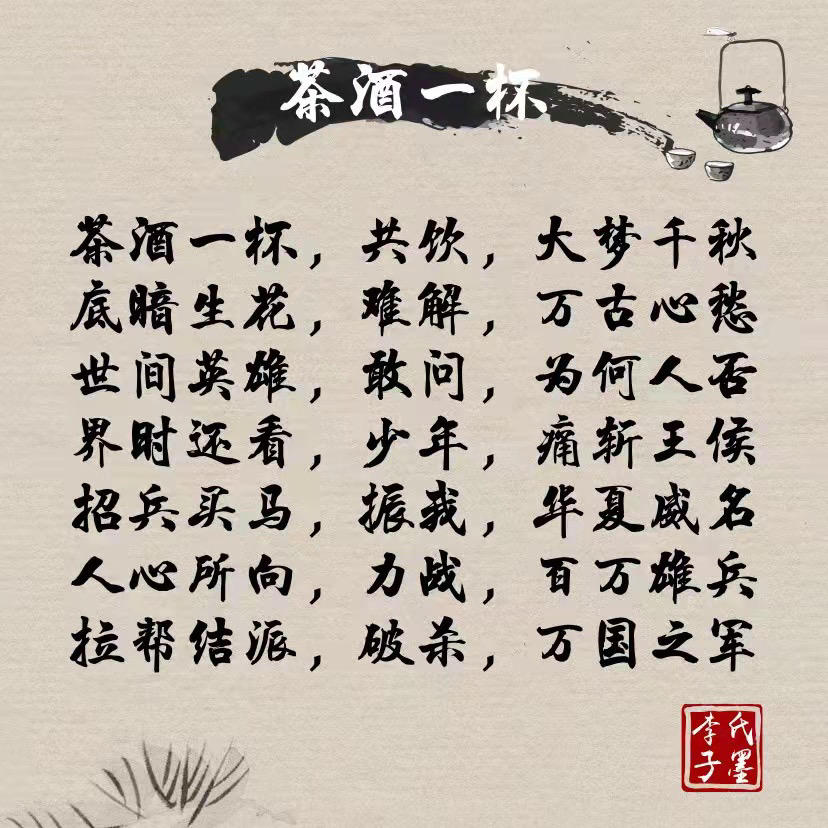 茶酒一杯
茶酒一杯，共饮，大梦千秋
底暗生花，难解，万古心愁
世间英雄，敢问，为何人否
界时还看，少年，痛斩王侯
招兵买马，振我，华夏威名
人心所向，力战，百万雄兵
拉帮结派，破杀，万国之军
李氏
子墨